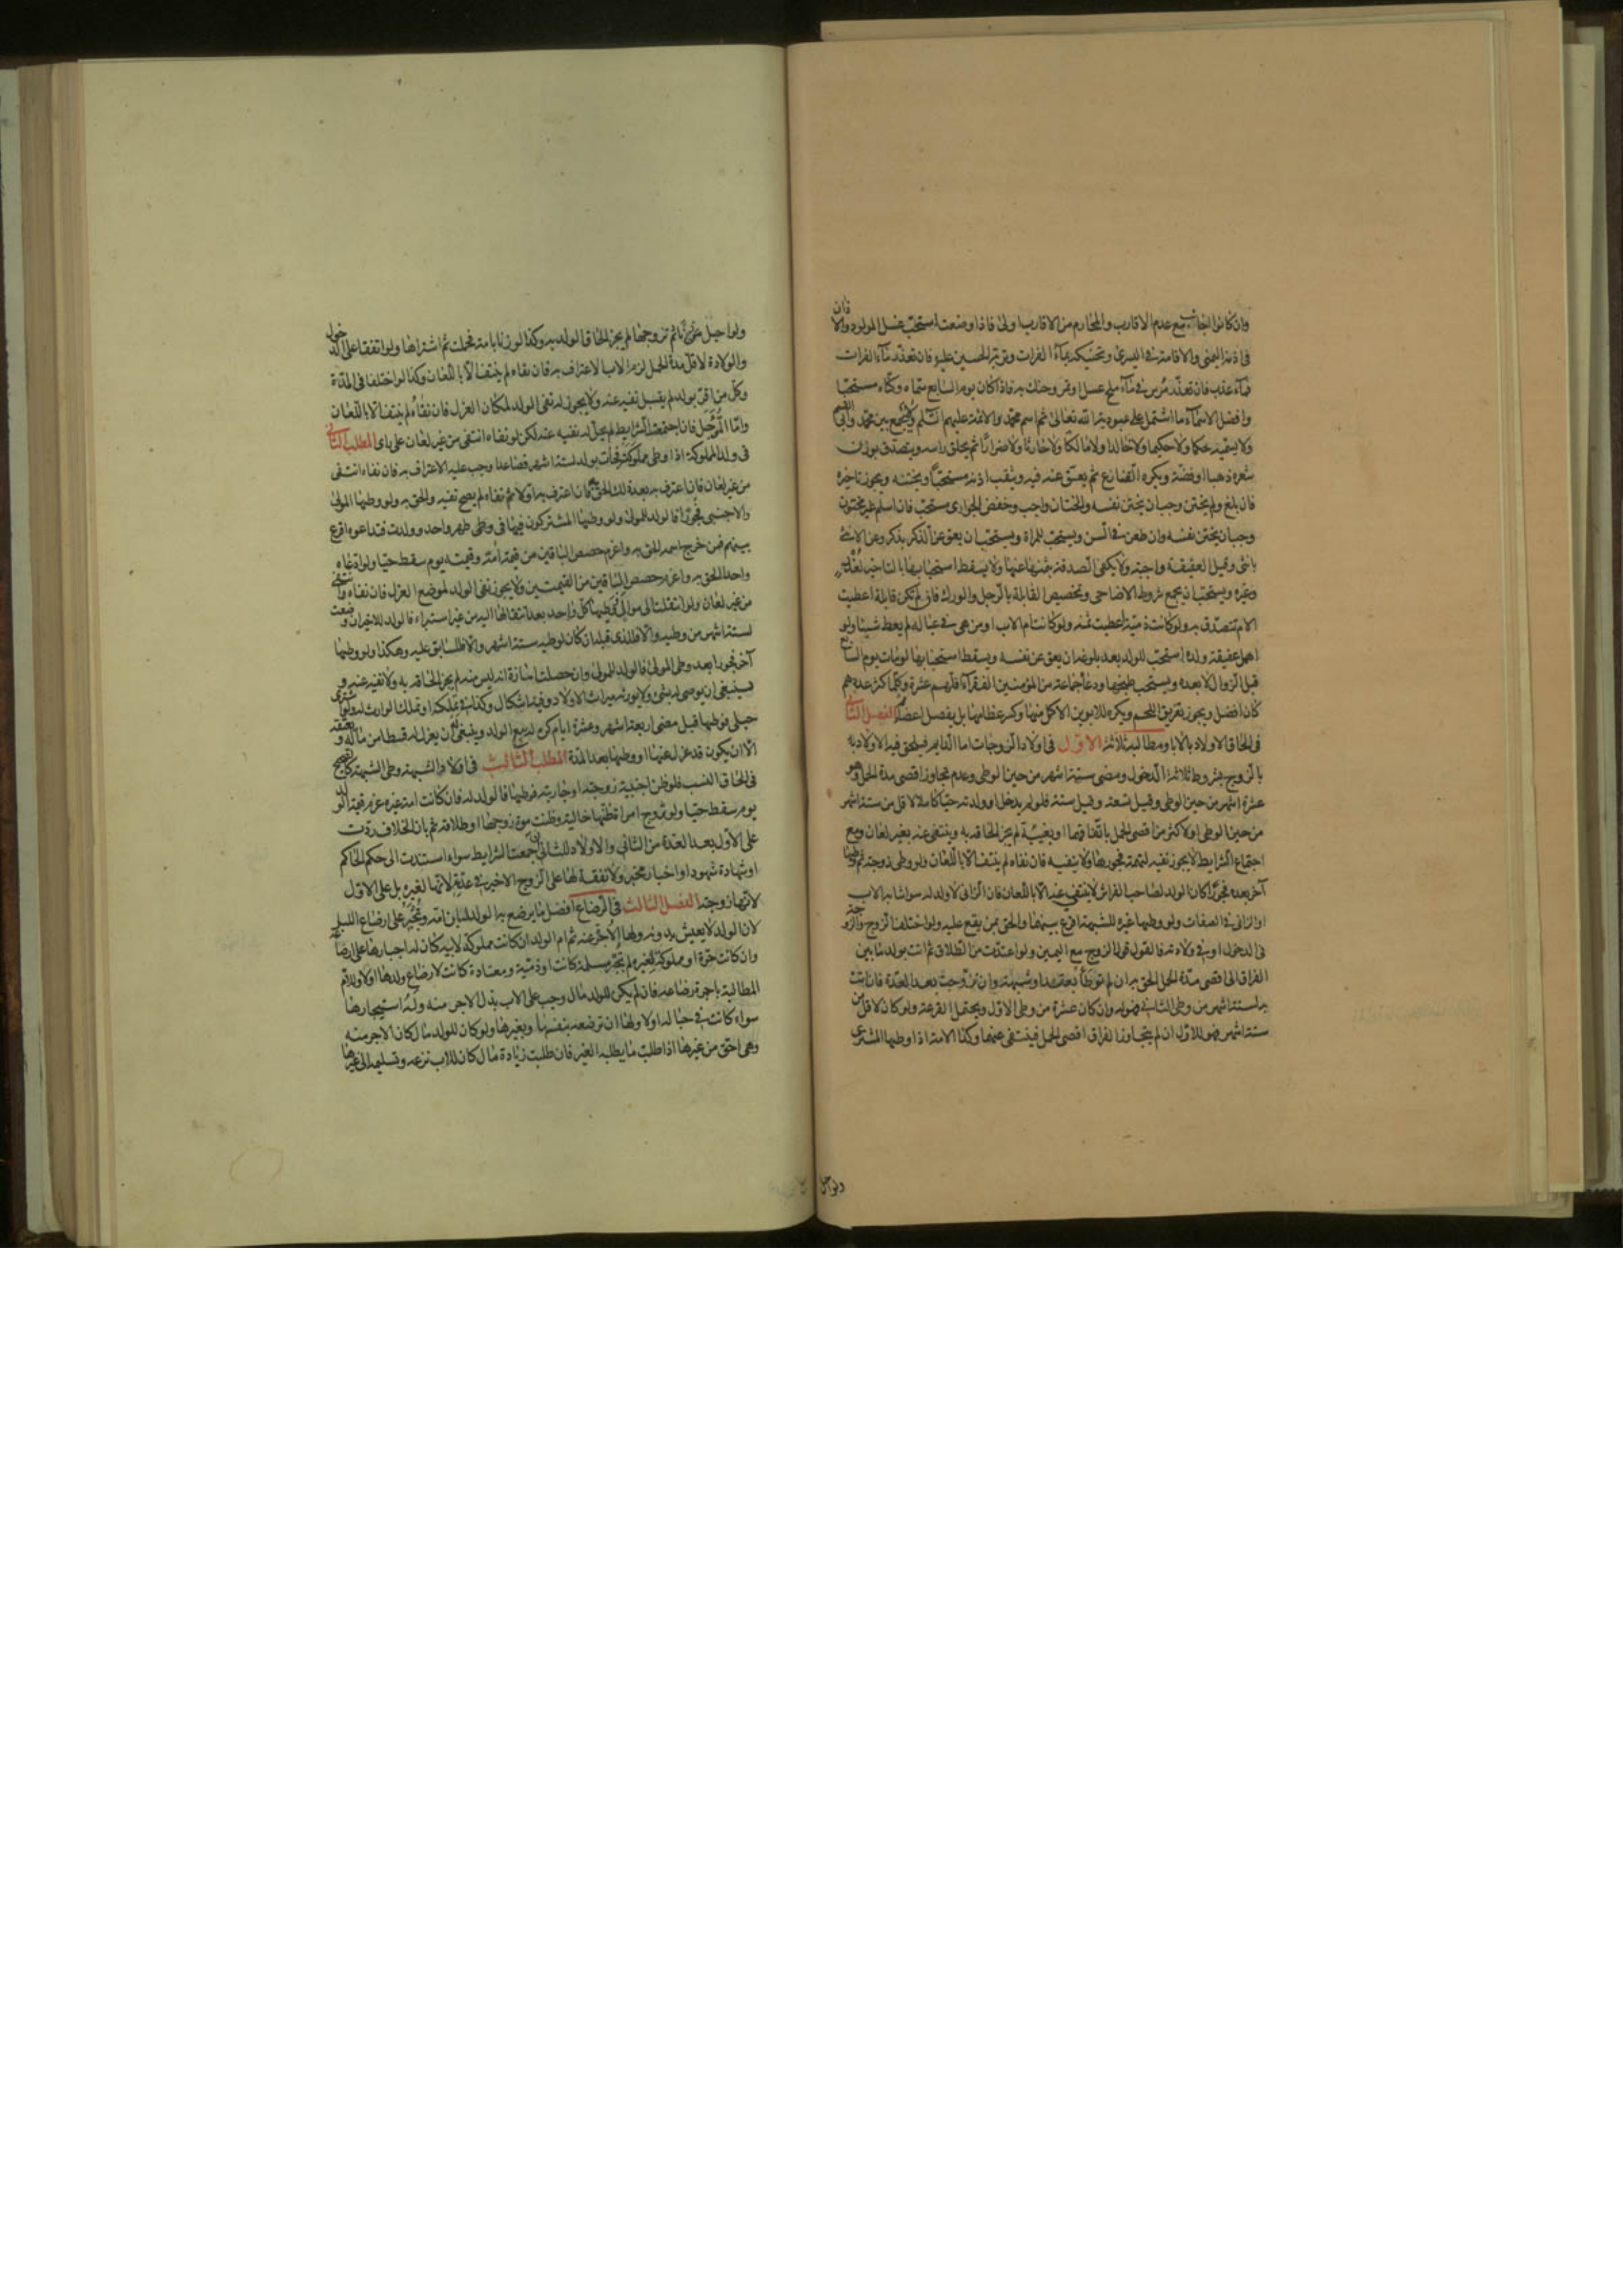 وان كانوا اجانب مع عدم الاقارب والمحارم من الاقارب اولى فاذا وضعت استحب غسل المولود والاذان
في اذنه اليمنى والاقامة في اليسرى وتحنيكه بماء الفرات وبتربة الحسين عليه فان تعذر ماء الفرات
فماء عذب فان تعذر مرس في ماء ملح عسل او تمر وحنك به فاذا كان يوم السابع سماه وكناه مستحبا
وافضل الاسماء ما اشتمل على عبودية الله تعالى ثم اسم محمد والائمة عليهم السلم ولا يجمع بين محمد وابي القسم
ولا يسميه حكما ولا حكيما ولا خالدا ولا مالكا ولا حارثا ولا ضرارا ثم يحلق راسه ويتصدق بوزن
شعره ذهبا او فضة ويكره القنازع ثم يعق عنه فيه ويثقب اذنه مستحبا ويختنه ويجوز تاخيره
فان بلغ ولم يختن وجب ان يختن نفسه والختان واجب وخفض الجواري مستحب فان اسلم غير مختون
وجب ان يختن نفسه وان طعن في السن ويستحب للمراة ويستحب ان يعق عن الذكر بذكر وعن الانثى
بانثى وقيل العقيقة واجبة ولا يكفي الصدقة بثمنها عنها ولا يسقط استحبابها بالتاخير لعذر
وغيره ويستحب ان يجمع شروط الاضاحي وتخصيص القابلة بالرجل والورك فان لم تكن قابلة اعطيت
الام تتصدق به ولو كانت ذمية اعطيت ثمنه ولو كانت ام الاب او من هي في عياله لم يعط شيئا ولو
اهمل عقيقة ولده استحب للولد بعد بلوغه ان يعق عن نفسه ويسقط استحبابها لو مات يوم السابع
قبل الزوال لا بعده ويستحب طبخها ودعا جماعة من المؤمنين الفقراء اقلهم عشرة وكلما كثر عددهم
كان افضل ويجوز تفريق اللحم ويكره للابوين الاكل منها وكسر عظامها بل يفصل اعضاء الفصل الثاني
في الحاق الاولاد بالاباء ومطالبه ثلاثة الاول في اولاد الزوجات اما الدايم فيلحق فيه الاولاد به
بالزوج بشروط ثلاثة الدخول ومضي ستة اشهر من حين الوطي وعدم تجاوز اقصى مدة الحمل وهو
عشرة اشهر من حين الوطي وقيل تسعة وقيل سنة فلو لم يدخل او ولدته حيا كاملا لاقل من ستة اشهر
من حين الوطي او لاكثر من اقصى الحمل باتفاقهما او بغيبته لم يجز الحاقه به وينتفي عنه بغير لعان ومع
اجتماع الشرايط لا يجوز نفيه لتهمة فجورها ولا ينفيه فان نفاه لم ينتف الا باللعان ولو وطي زوجته ثم وطئها
آخر بعده فجورا كان الولد لصاحب الفراش لا ينتفي عنه الا باللعان فان الزاني لا ولد له سواء شابه الاب
او الزاني في الصفات ولو وطئها غيره للشبهة اقرع بينهما والحق بمن يقع عليه ولو اختلف الزوج والزوجة
في الدخول او في ولادته فالقول قول الزوج مع اليمين ولو اعتدت من الطلاق ثم اتت بولد ما بين
الفراق الى اقصى مدة الحمل الحق به ان لم توطا بعقد او شبهة وان تزوجت بعد العدة فان اتت
به لستة اشهر من وطي الثاني فهو له وان كان عشرة من وطي الاول ويحتمل القرعة ولو كان لاقل من
ستة اشهر فهو للاول ان لم يتجاوز الفراق اقصى الحمل فينتفي عنهما وكذا الامة اذا وطيها المشتري
ولو احبل
ولو احبل من زنا ثم تزوجها لم يجز الحاق الولد به وكذا لو زنا بامة فحملت ثم اشتراها ولو اتفقا على الدخول
والولادة لاقل مدة الحمل لزم الاب الاعتراف به فان نفاه لم ينتف الا باللعان وكذا لو اختلفا في المدة
وكل من اقر بولد لم يقبل نفيه عنه ولا يجوز له نفي الولد لمكان العزل فان نفاه لم ينتف الا باللعان
واما المؤجل فان اجتمعت الشرايط لم يحل له نفيه عنه لكن لو نفاه انتفى من غير لعان على راى المطلب الثاني
في ولد المملوكة اذا وطي مملوكته فجاءت بولد لستة اشهر فصاعدا وجب عليه الاعتراف به فان نفاه انتفى
من غير لعان فان اعترف به بعد ذلك الحق به فان اعترف به اولا ثم نفاه لم يصح نفيه والحق به ولو وطيها المولى
والاجنبي فجورا فالولد للمولى ولو وطيها المشتركون فيها في وطي طهر واحد وولدت فتداعوه اقرع
بينهم فمن خرج اسمه الحق به واغرم حصص الباقين من قيمة امه وقيمته يوم سقط حيا ولو ادعاه
واحد الحق به واغرم حصص الباقين من القيمتين ولا يجوز نفي الولد لموضع العزل فان نفاه انتفى
من غير لعان ولو انتقلت الى موالي فوطيها كل واحد بعد انتقالها اليه من غير استبراء فالولد للاخير ان وضعت
لستة اشهر من وطيه والا فللذي قبله ان كان لوطيه ستة اشهر والا فللسابق عليه وهكذا ولو وطيها
آخر فجورا بعد وطي المولى فالولد للمولى وان حصلت امارة انه ليس منه لم يجز الحاقه به ولا نفيه عنه و
ينبغي ان يوصي له بشيء ولا يورثه ميراث الاولاد وفيه اشكال وكذا في تملكه او تملك الوارث له ولو اشترى
حبلى فوطيها قبل مضي اربعة اشهر وعشرة ايام كره له بيع الولد وينبغي ان يعزل له قسطا من ماله ويعتقه
الا ان يكون قد عزل عنها او وطيها بعد المدة المطلب الثالث في اولاد الشبهة وطي الشبهة كالصحيح
في الحاق النسب فلو ظن اجنبية زوجته او جاريته فوطيها فالولد له فان كانت امة غيره غرم قيمة الولد
يوم سقط حيا ولو تزوج امراة ظنها خالية وظنت موت زوجها او طلاقه ثم بان الخلاف ردت
على الاول بعد العدة من الثاني والاولاد للثاني ان جمعت الشرايط سواء استندت الى حكم الحاكم
او شهادة شهود او اخبار مخبر ولا نفقة لها على الزوج الاخير في عدته لانها لغيره بل على الاول
لانها زوجته الفصل الثالث في الرضاع افضل ما يرضع به الولد لبان امه وتجبر على ارضاع اللباء
لان الولد لا يعيش بدونه ولها الاجر عنه ثم ام الولد ان كانت مملوكة لابيه كان له اجبارها على رضاعه
وان كانت حرة او مملوكة لغيره لم تجبر مسلمة كانت او ذمية ومعتادة كانت لارضاع ولدها او لا وللام
المطالبة باجرة رضاعه فان لم يكن للولد مال وجب على الاب بذل الاجر منه وله استيجارها
سواء كانت في حباله او لا ولها ان ترضعه بنفسها وبغيرها ولو كان للولد مال كان الاجر منه
وهي احق من غيرها اذا طلبت ما يطلبه الغير فان طلبت زيادة مال كان للاب نزعه وتسليمه الى غيرها